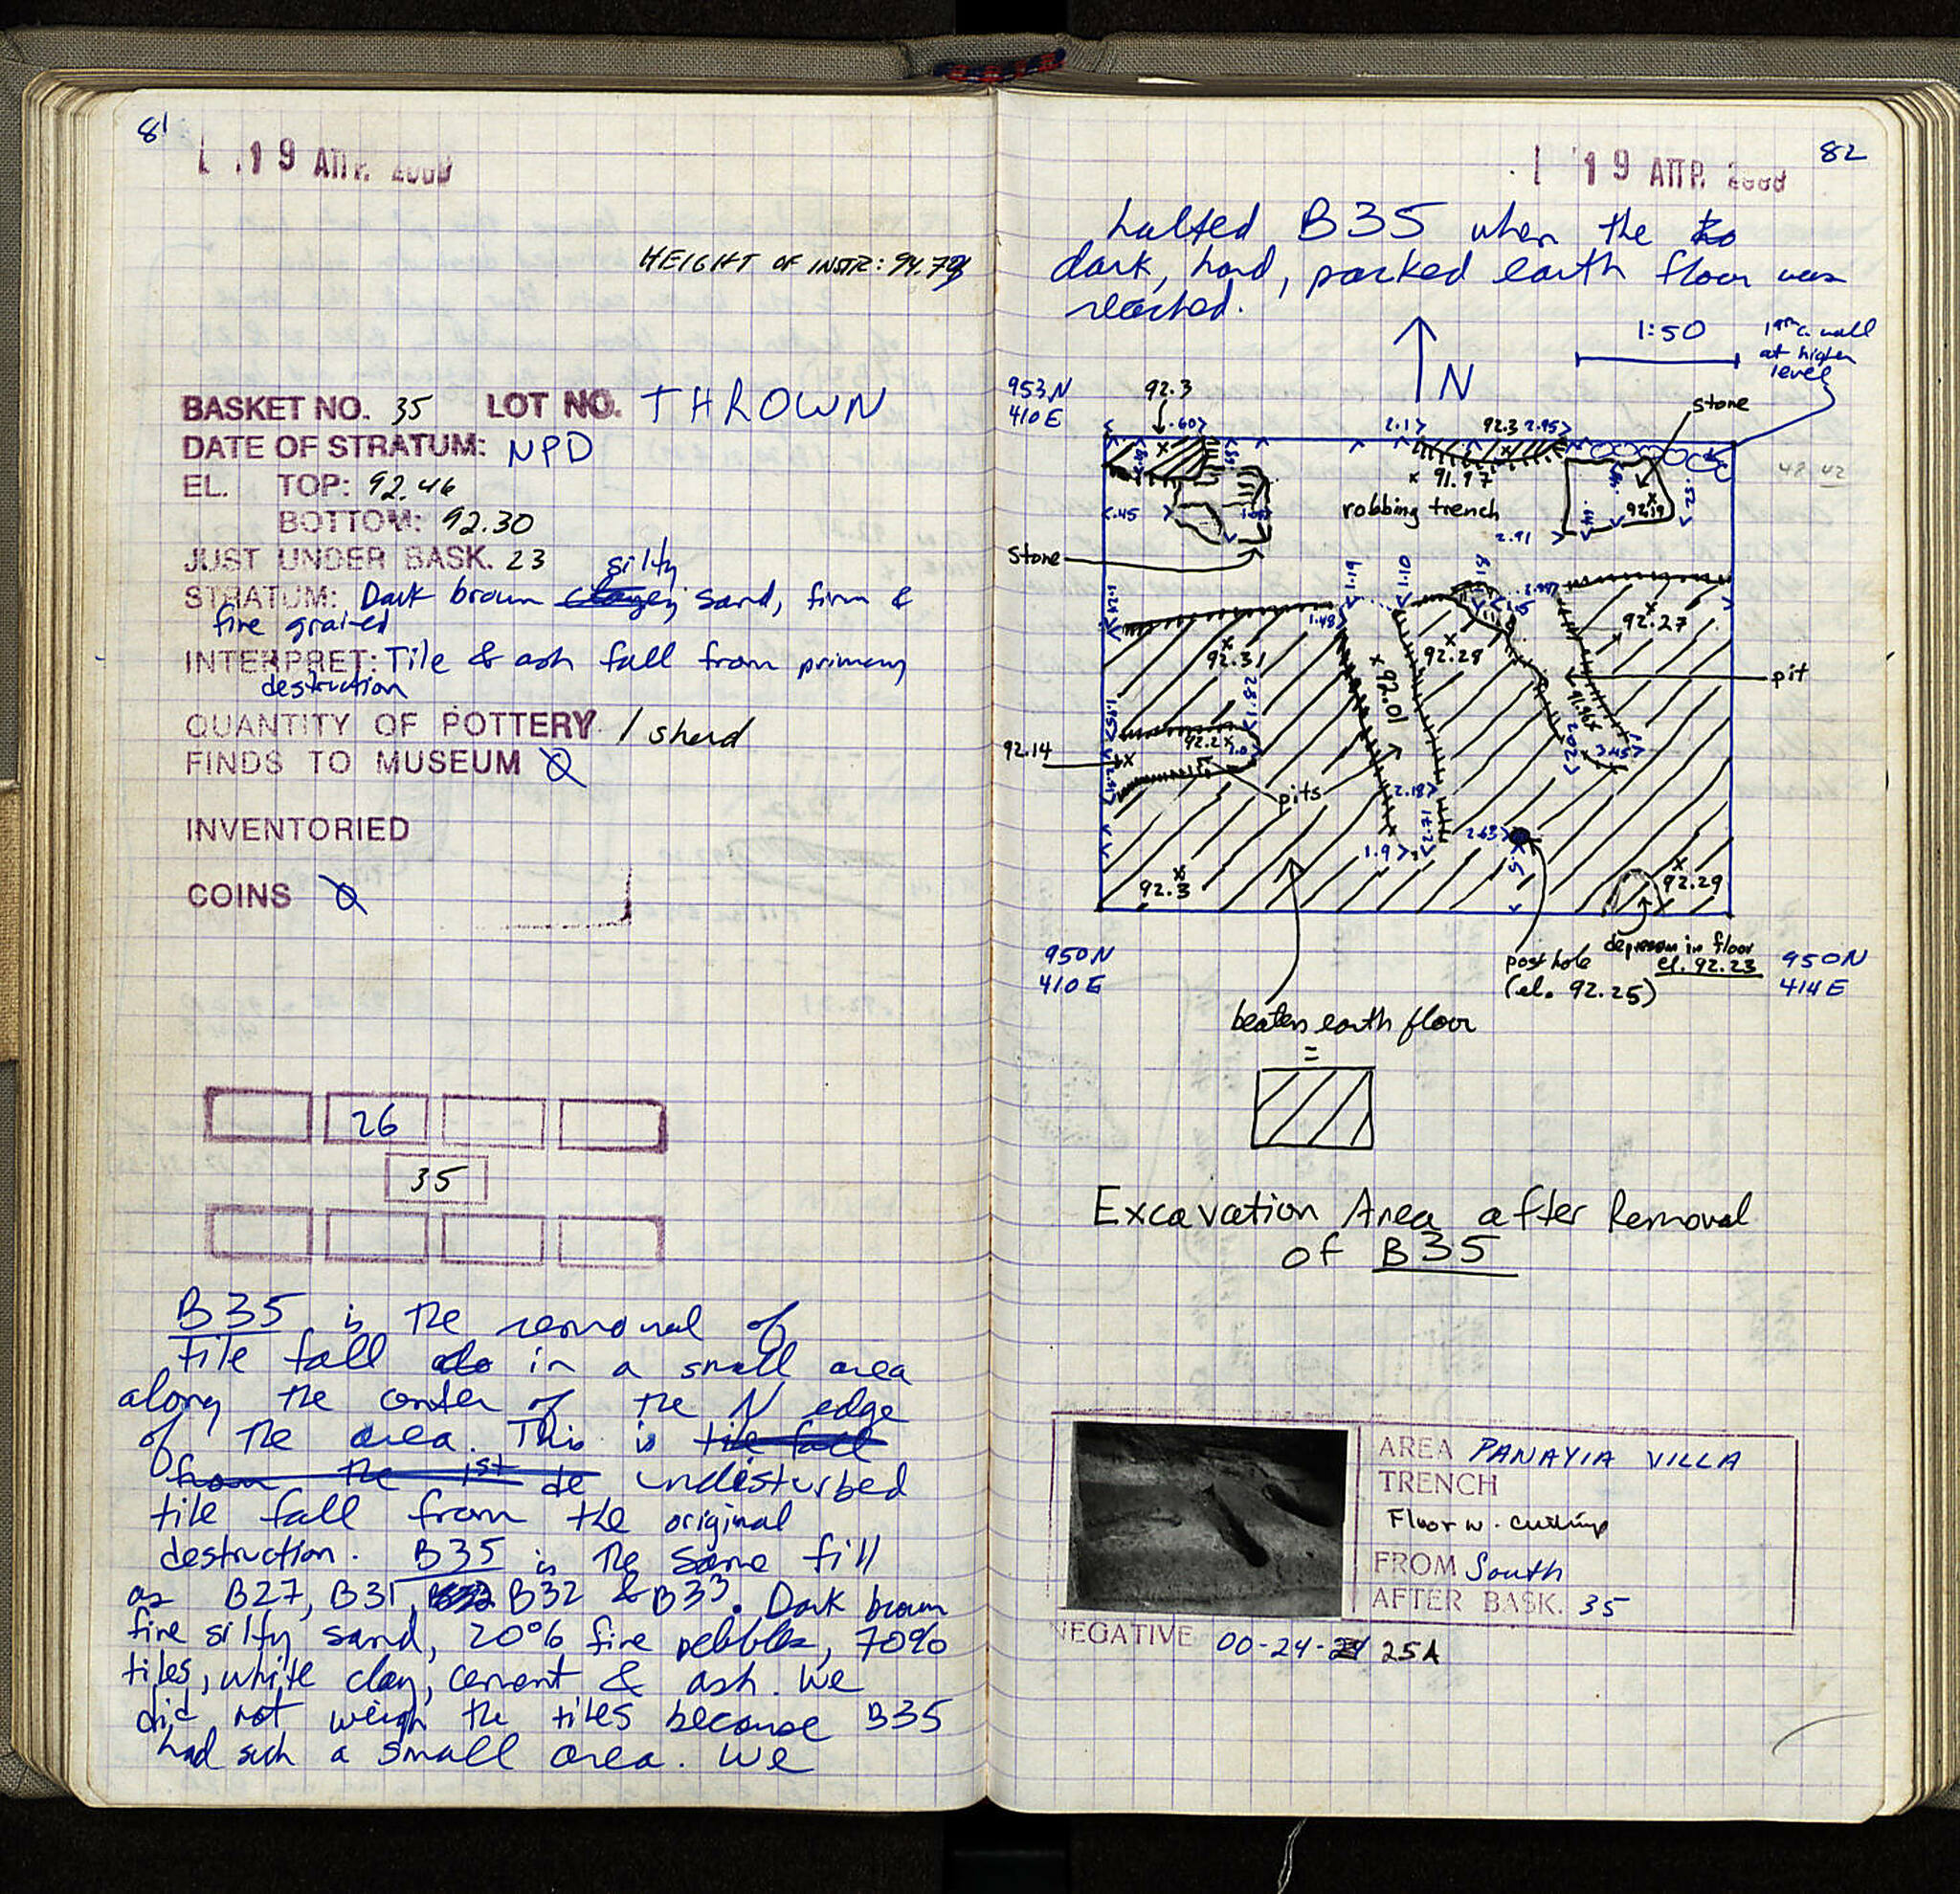 81
19 ΑΠΡ. 2000
HEIGHT OF INSTR: 94.79
BASKET NO. 35 LOT NO. THROWN
DATE OF STRATUM: NPD
EL. TOP: 92.46
BOTTOM: 92.30
JUST UNDER BASK. 23
silty
STRATUM: Dark brown clayey sand, firm &
fine grained
INTERPRET: Tile & ash fall from primary
destruction
QUANTITY OF POTTERY 1 sherd
FINDS TO MUSEUM Ø
INVENTORIED
COINS Ø
26
35
B35 is the removal of
tile fall in a small area
along the center of the N edge
of the area. This is tile fall
from the 1st de undisturbed
tile fall from the original
destruction. B35 is the same fill
as B27, B31, B32 & B33. Dark brown
fine silty sand, 20% fine pebbles, 70%
tiles, white clay, cement & ash. We
did not weigh the tiles because B35
had such a small area. We
82
19 ΑΠΡ. 2000
halted B35 when the
dark, hard, packed earth floor was
reached.
N
1:50
19th c. wall
at higher
level
953 N
410 E
92.3
.60
2.17
92.3
2.95
stone
91.97
robbing trench
92.19
.52
.45
2.91
stone
1.19
1.10
.18
1.48
92.31
92.01
92.28
92.27
pit
1.82
92.14
92.2
pits
2.18
2.02
3.45
1.9
2.63
.5
92.3
92.29
950 N
410 E
post hole
(el. 92.25)
depression in floor
el. 92.23
950 N
414 E
beaten earth floor
=
Excavation Area after Removal
of B35
AREA PANAYIA VILLA
TRENCH
Floor w. cuttings
FROM South
AFTER BASK. 35
NEGATIVE 00-24-25A